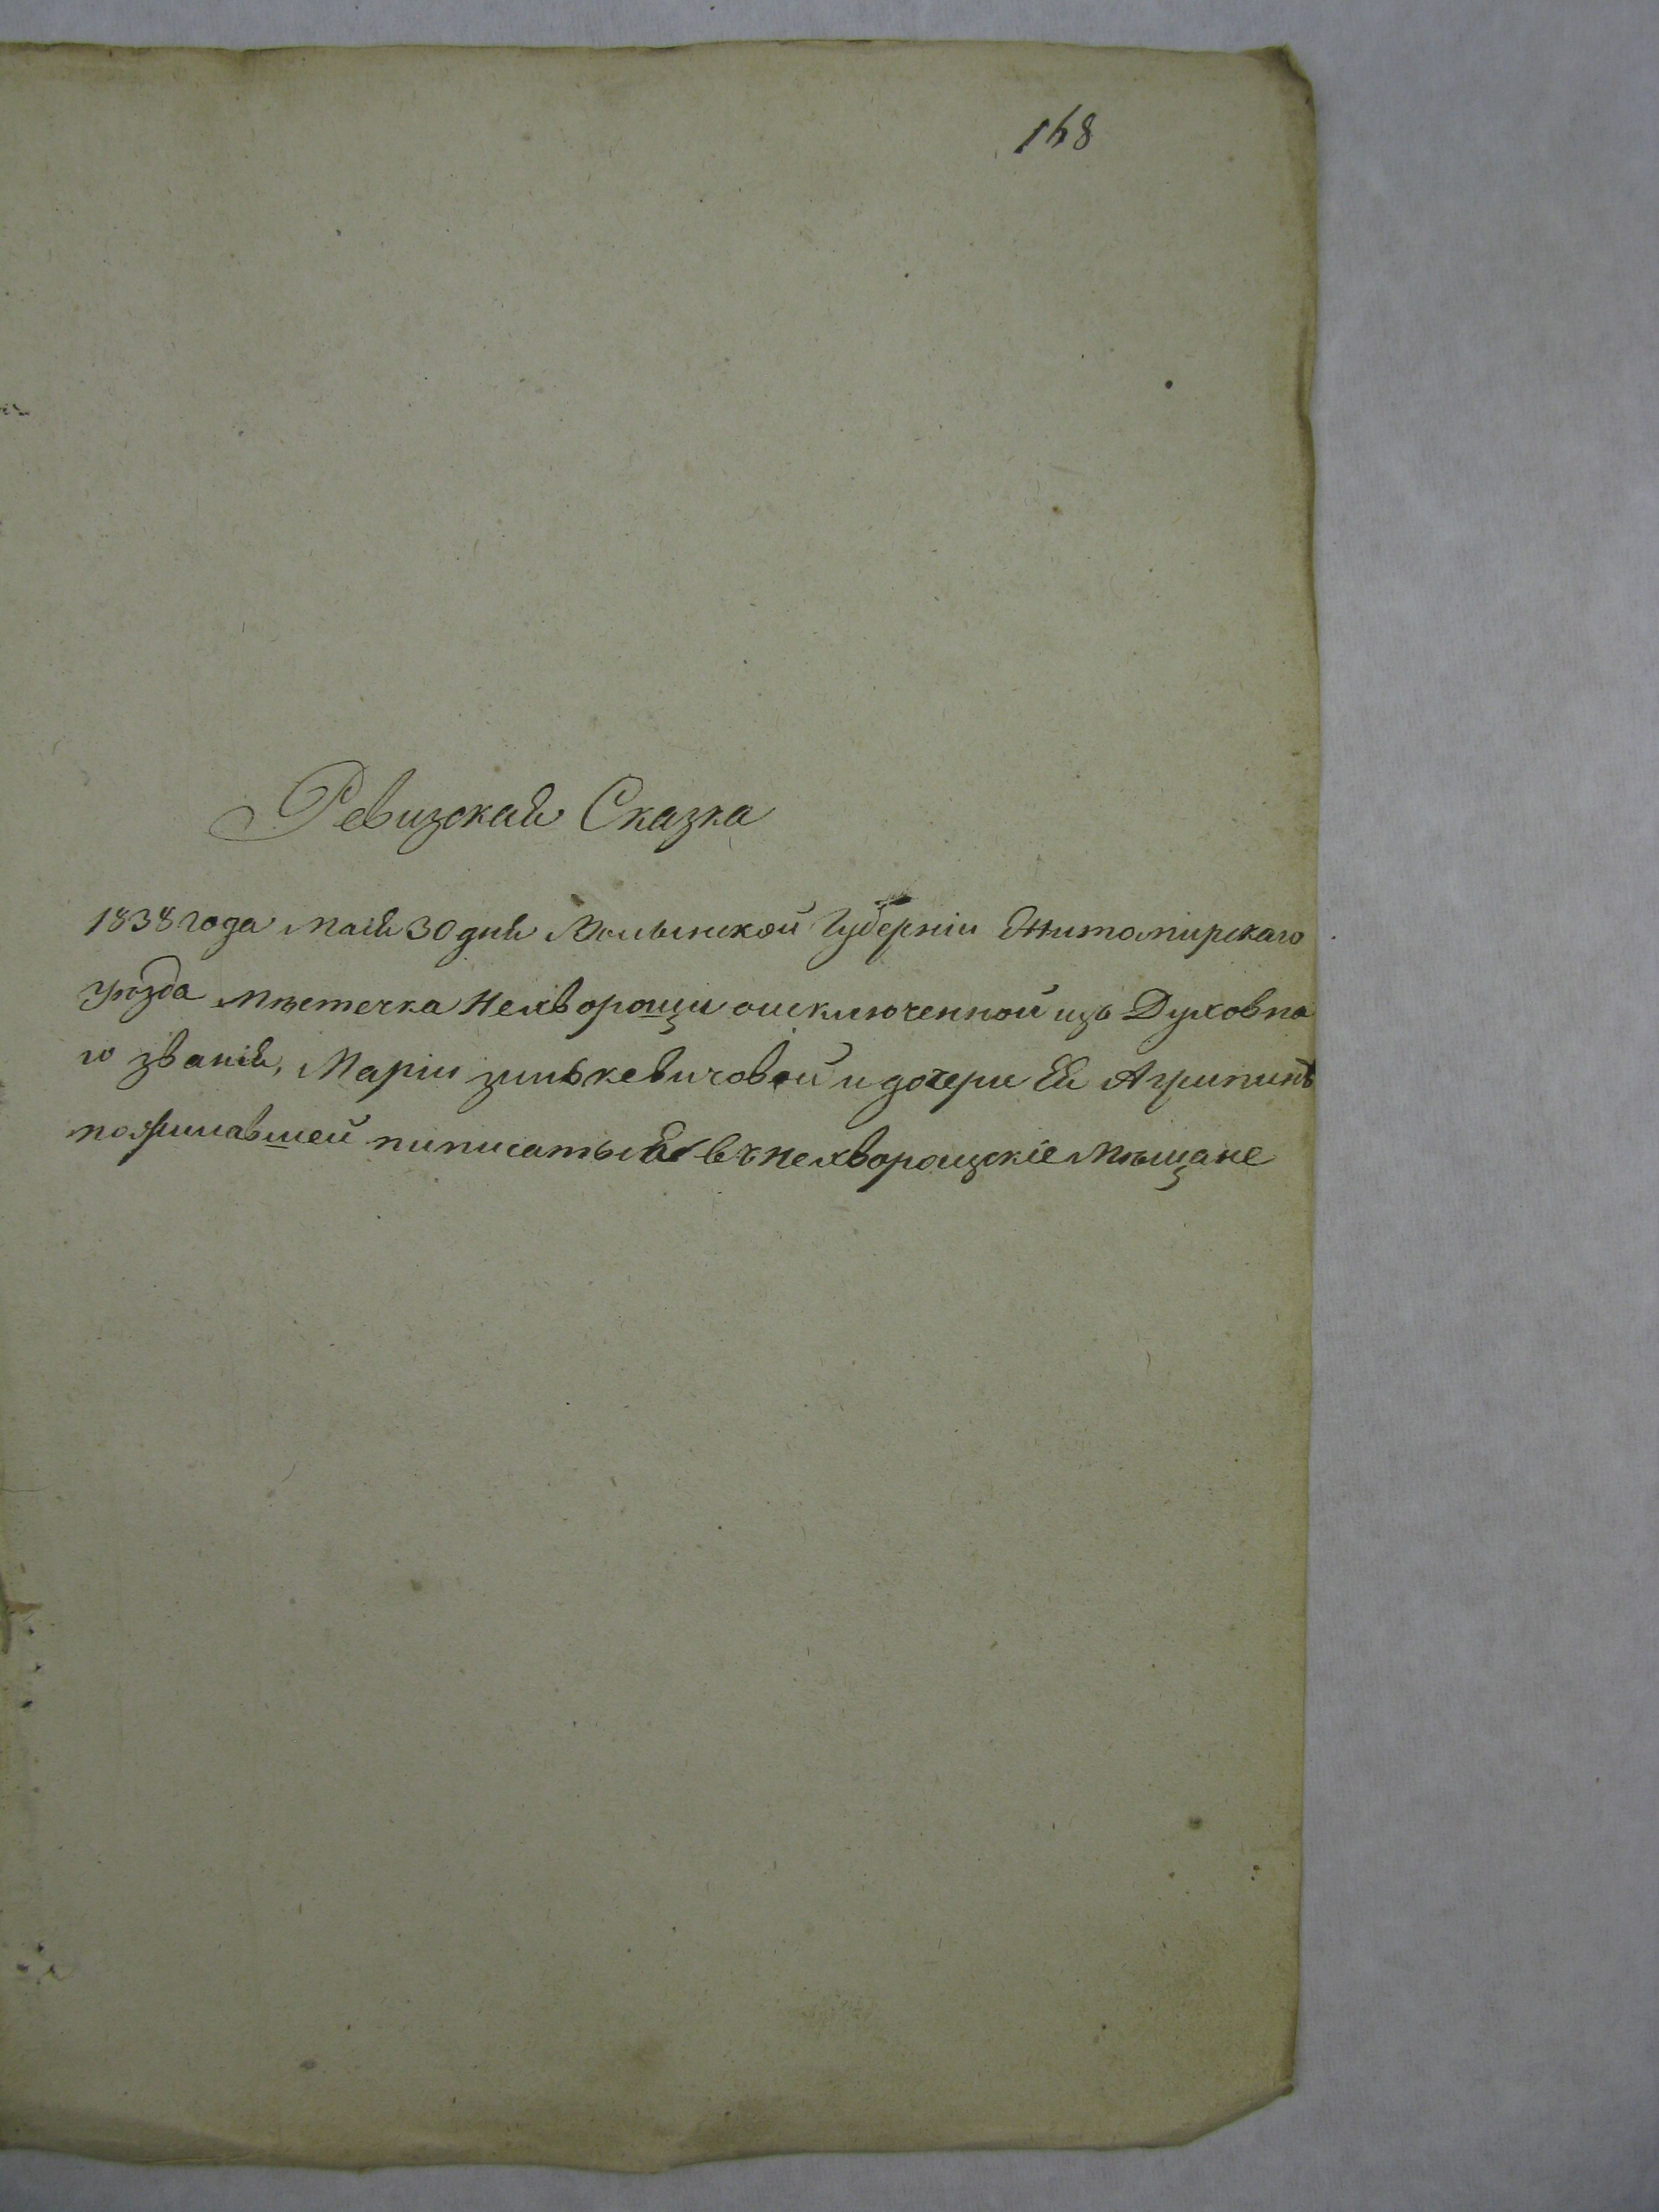 168
Ревизская Сказка
1838 года маія 30 дня Волынской Губерніи Житомирскаго
уѣзда мѣстечка Нехворощи оисключенной изъ Духовна
го званія, Маріи зинькевичовой и дочери Ея Агрипинѣ
пожилавшей пиписаться въ нехворощскіе мѣщане